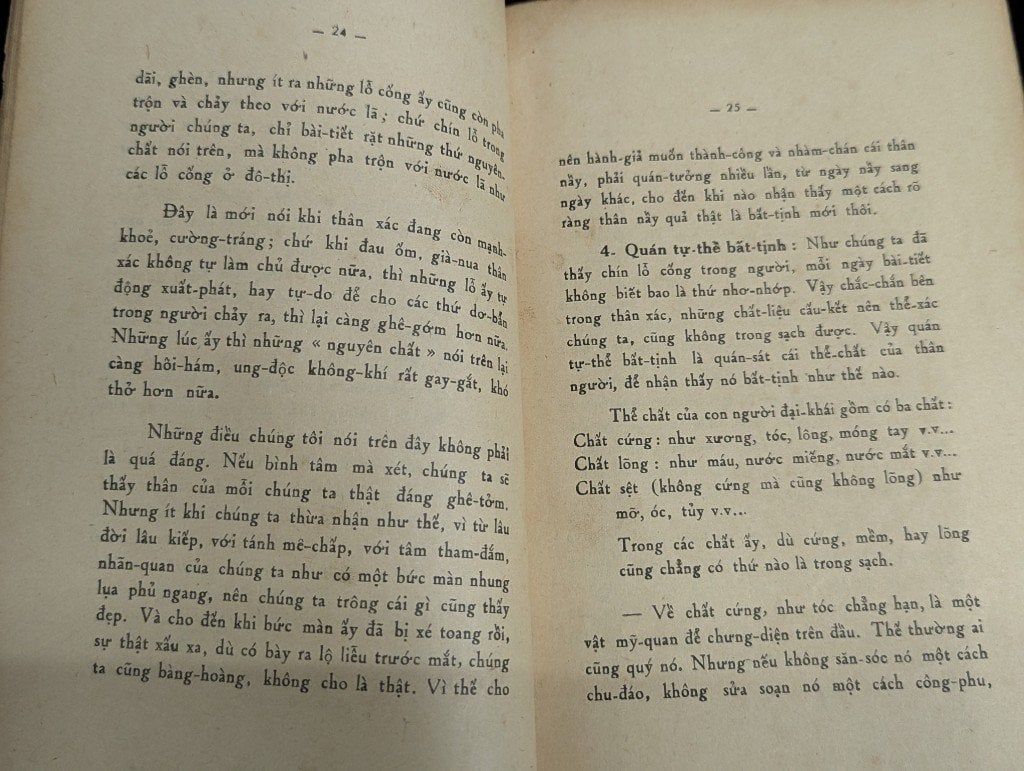 — 24 —
dãi, ghèn, nhưng ít ra những lỗ cống ấy cũng còn pha
trộn và chảy theo với nước lã ; chứ chín lỗ trong
người chúng ta, chỉ bài-tiết rặt những thứ nguyên-
chất nói trên, mà không pha trộn với nước lã như
các lỗ cống ở đô-thị.
Đây là mới nói khi thân xác đang còn mạnh-
khoẻ, cường-tráng ; chứ khi đau ốm, già-nua thân
xác không tự làm chủ được nữa, thì những lỗ ấy tự
động xuất-phát, hay tự-do để cho các thứ dơ-bẩn
trong người chảy ra, thì lại càng ghê-gớm hơn nữa.
Những lúc ấy thì những « nguyên chất » nói trên lại
càng hôi-hám, ung-độc không-khí rất gay-gắt, khó
thở hơn nữa.
Những điều chúng tôi nói trên đây không phải
là quá đáng. Nếu bình tâm mà xét, chúng ta sẽ
thấy thân của mỗi chúng ta thật đáng ghê-tởm.
Nhưng ít khi chúng ta thừa nhận như thế, vì từ lâu
đời lâu kiếp, với tánh mê-chấp, với tâm tham-đắm,
nhãn-quan của chúng ta như có một bức màn nhung
lụa phủ ngang, nên chúng ta trông cái gì cũng thấy
đẹp. Và cho đến khi bức màn ấy đã bị xé toang rồi,
sự thật xấu xa, dù có bày ra lộ liễu trước mắt, chúng
ta cũng bàng-hoàng, không cho là thật. Vì thế cho
— 25 —
nên hành-giả muốn thành-công và nhàm-chán cái thân
nầy, phải quán-tưởng nhiều lần, từ ngày nầy sang
ngày khác, cho đến khi nào nhận thấy một cách rõ
ràng thân nầy quả thật là bất-tịnh mới thôi.
4- Quán tự-thể bất-tịnh : Như chúng ta đã
thấy chín lỗ cống trong người, mỗi ngày bài-tiết
không biết bao là thứ nhơ-nhớp. Vậy chắc-chắn bên
trong thân xác, những chất-liệu cấu-kết nên thể-xác
chúng ta, cũng không trong sạch được. Vậy quán
tự-thể bất-tịnh là quán-sát cái thể-chất của thân
người, để nhận thấy nó bất-tịnh như thế nào.
Thể chất của con người đại-khái gồm có ba chất :
Chất cứng : như xương, tóc, lông, móng tay v.v...
Chất lõng : như máu, nước miếng, nước mắt v.v...
Chất sệt (không cứng mà cũng không lõng) như
mỡ, óc, tủy v.v...
Trong các chất ấy, dù cứng, mềm, hay lõng
cũng chẳng có thứ nào là trong sạch.
— Về chất cứng, như tóc chẳng hạn, là một
vật mỹ-quan để chưng-diện trên đầu. Thế thường ai
cũng quý nó. Nhưng nếu không săn-sóc nó một cách
chu-đáo, không sửa soạn nó một cách công-phu,